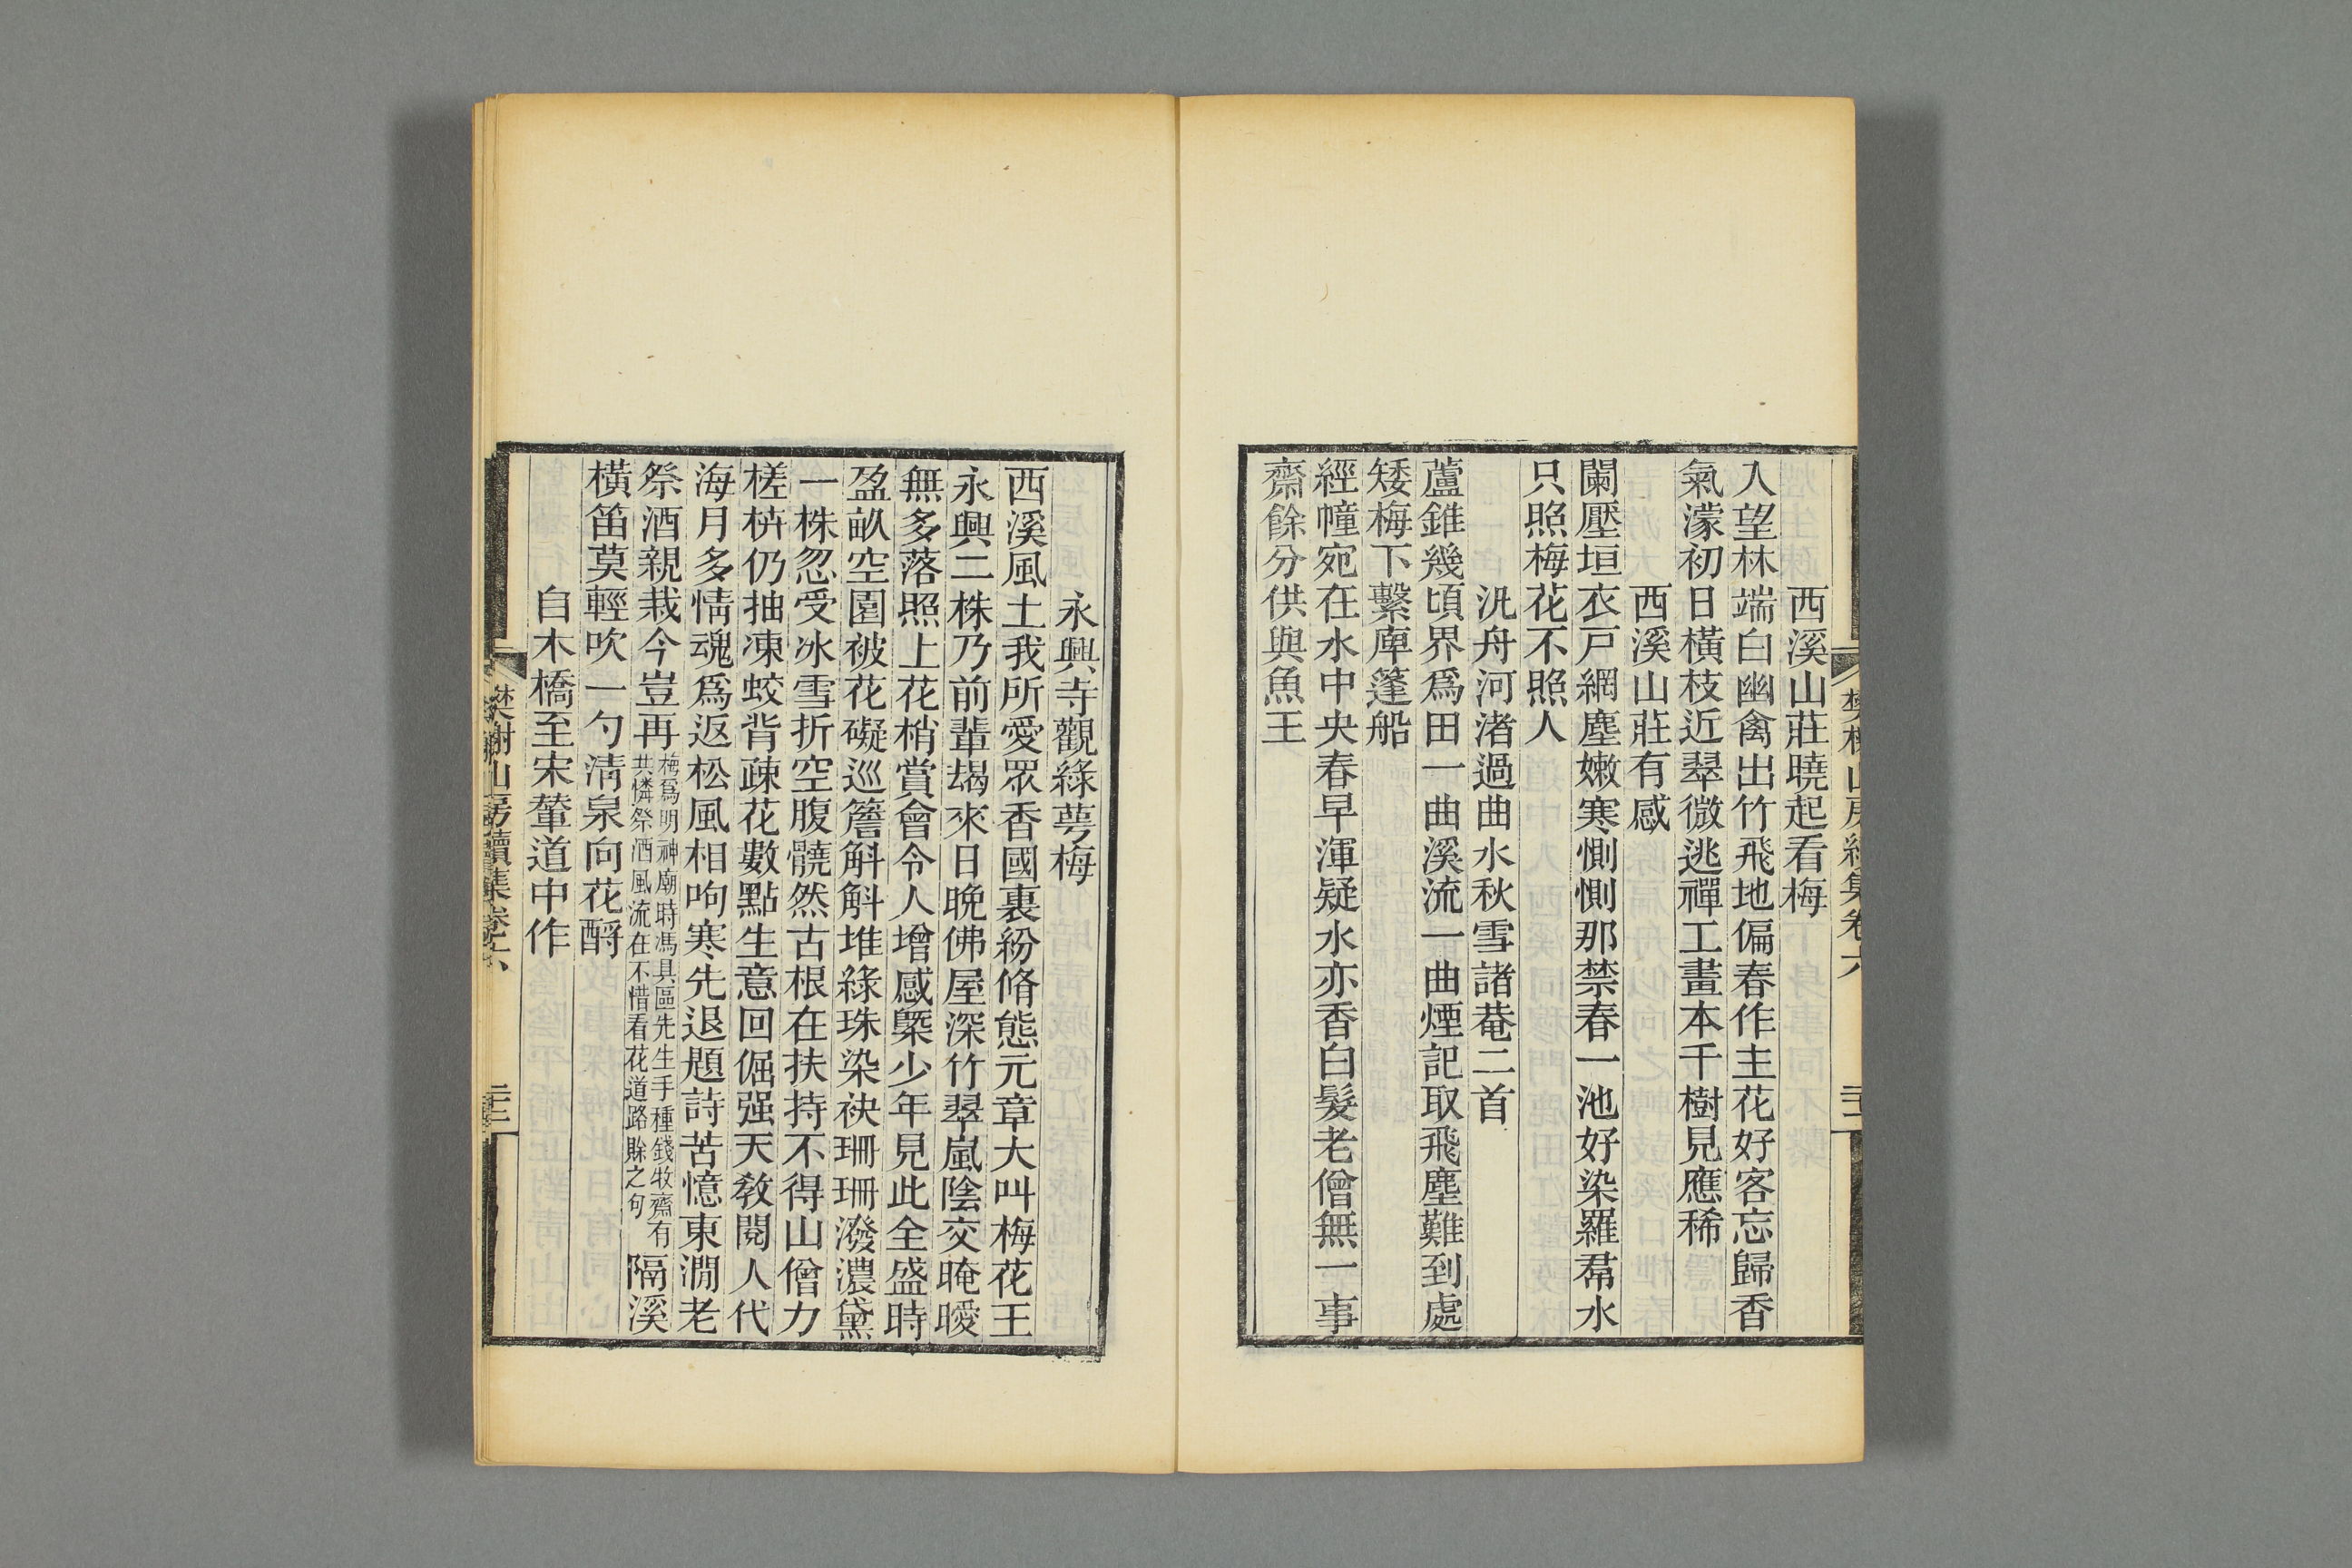 西溪山莊曉起看梅
入望林端白幽禽出竹飛地偏春作主花好客忘歸香
氣濛初日橫枝近翠微逃禪工畫本千樹見應稀
西溪山莊有感
闌壓垣衣戸網塵嫩寒惻惻那禁春一池好染羅帬水
只照梅花不照人
汎舟河渚過曲水秋雪諸菴二首
蘆錐幾頃界爲田一曲溪流一曲煙記取飛塵難到處
矮梅下繫庳篷船
經幢宛在水中央春早渾疑水亦香白髮老僧無一事
齋餘分供與魚王
永興寺觀綠萼梅
西溪風土我所愛眾香國裏紛脩態元章大叫梅花王
永興二株乃前輩朅來日晚佛屋深竹翠嵐陰交晻曖
無多落照上花梢賞會令人增感槩少年見此全盛時
盈畝空園被花礙巡簷斛斛堆綠珠染袂珊珊潑濃黛
一株忽受冰雪折空腹髐然古根在扶持不得山僧力
槎枿仍抽凍蛟背疎花數點生意回倔强天教閱人代
海月多情魂爲返松風相呴寒先退題詩苦憶東澗老
祭酒親栽今豈再梅爲明神廟時馮具區先生手種錢牧齋有共憐祭酒風流在不惜看花道路賖之句隔溪
橫笛莫輕吹一勺淸泉向花酹
自木橋至宋輦道中作
樊榭山房續集卷六